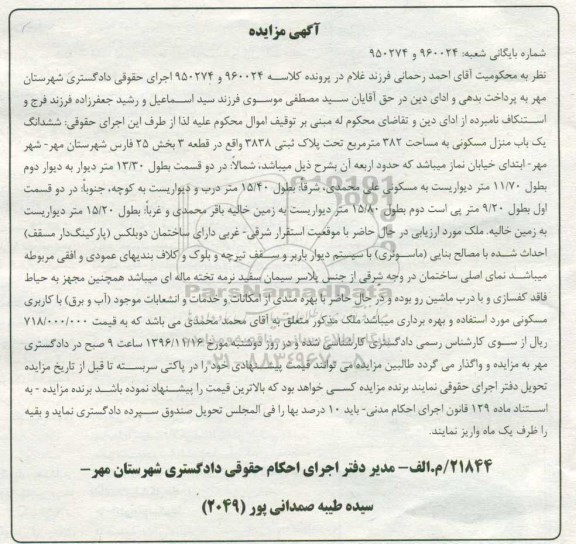 آگهی مزایده
شماره بایگانی شعبه: ۹۶۰۰۲۴ و ۹۵۰۲۷۴
نظر به محکومیت آقای احمد رحمانی فرزند غلام در پرونده کلاسه ۹۶۰۰۲۴ و ۹۵۰۲۷۴ اجرای حقوقی دادگستری شهرستان
مهر به پرداخت بدهی و ادای دین در حق آقایان سید مصطفی موسوی فرزند سید اسماعیل و رشید جعفرزاده فرزند فرج و
استنکاف نامبرده از ادای دین و تقاضای محکوم له مبنی بر توقیف اموال محکوم علیه لذا از طرف این اجرای حقوقی: ششدانگ
یک باب منزل مسکونی به مساحت ۳۸۲ مترمربع تحت پلاک ثبتی ۳۸۳۸ واقع در قطعه ۳ بخش ۲۵ فارس شهرستان مهر- شهر
مهر- ابتدای خیابان نماز میباشد که حدود اربعه آن بشرح ذیل میباشد، شمالاً: در دو قسمت بطول ۱۳/۳۰ متر دیوار به دیوار دوم
بطول ۱۱/۷۰ متر دیواریست به مسکونی علی محمدی، شرقاً: بطول ۱۵/۴۰ متر درب و دیواریست به کوچه، جنوباً: در دو قسمت
اول بطول ۹/۲۰ متر پی است دوم بطول ۱۵/۸۰ متر دیواریست به زمین خالیه باقر محمدی و غرباً: بطول ۱۵/۲۰ متر دیواریست
به زمین خالیه. ملک مورد ارزیابی در حال حاضر با موقعیت استقرار شرقی- غربی دارای ساختمان دوبلکس (پارکینگ‌دار مسقف)
احداث شده با مصالح بنایی (ماسونری) با سیستم دیوار باربر و سقف تیرچه و بلوک و کلاف بندیهای عمودی و افقی مربوطه
میباشد نمای اصلی ساختمان در وجه شرقی از جنس پلاسر سیمان سفید نرمه تخته ماله ای میباشد همچنین مجهز به حیاط
فاقد کفسازی و با درب ماشین رو بوده و در حال حاضر با بهره مندی از امکانات و خدمات و انشعابات موجود (آب و برق) با کاربری
مسکونی مورد استفاده و بهره برداری میباشد ملک مذکور متعلق به آقای محمد محمدی می باشد که به قیمت ۷۱۸/۰۰۰/۰۰۰
ریال از سوی کارشناس رسمی دادگستری کارشناسی شده و در روز دوشنبه مورخ ۱۳۹۶/۱۱/۱۶ ساعت ۹ صبح در دادگستری
مهر به مزایده و واگذار می گردد طالبین مزایده می توانند قیمت پیشنهادی خود را در پاکتی سربسته تا قبل از تاریخ مزایده
تحویل دفتر اجرای حقوقی نمایند برنده مزایده کسی خواهد بود که بالاترین قیمت را پیشنهاد نموده باشد برنده مزایده - به
استناد ماده ۱۲۹ قانون اجرای احکام مدنی- باید ۱۰ درصد بها را فی المجلس تحویل صندوق سپرده دادگستری نماید و بقیه
را ظرف یک ماه واریز نمایند.
۲۱۸۴۴/م.الف- مدیر دفتر اجرای احکام حقوقی دادگستری شهرستان مهر-
سیده طیبه صمدانی پور (۲۰۴۹)
ParsNamadData
۰۲۱-۸۸۳۴۹۶۷۰-۵